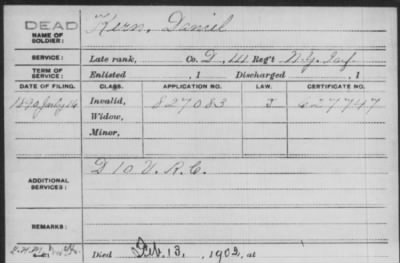 DEAD
Kern, Daniel
NAME OF
SOLDIER:
SERVICE:
Late rank, Co. D, 111 Reg't N.Y. Inf
TERM OF
SERVICE:
Enlisted , 1 Discharged , 1
DATE OF FILING. CLASS. APPLICATION NO. LAW. CERTIFICATE NO.
1890 July 16 Invalid, 827083 627747
Widow,
Minor,
ADDITIONAL
SERVICES:
D 10 V.R.C.
REMARKS:
Died Feb. 13, 1902, at